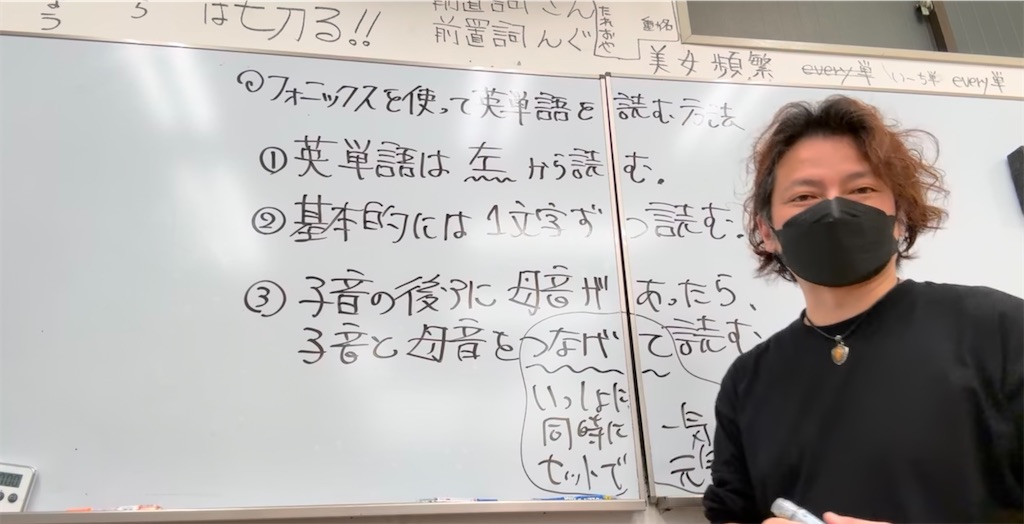 は七刀る!!
前置詞 さん
前置詞 んぐ
美女頻繁 every単 いーち単 every単
フォニックスを使って英単語を読む方法
①英単語は左から読む.
②基本的には1文字ずつ読む.
③子音の後ろに母音があったら、
子音と母音をつなげて読む.
いっしょに
同時に 一気
セットで